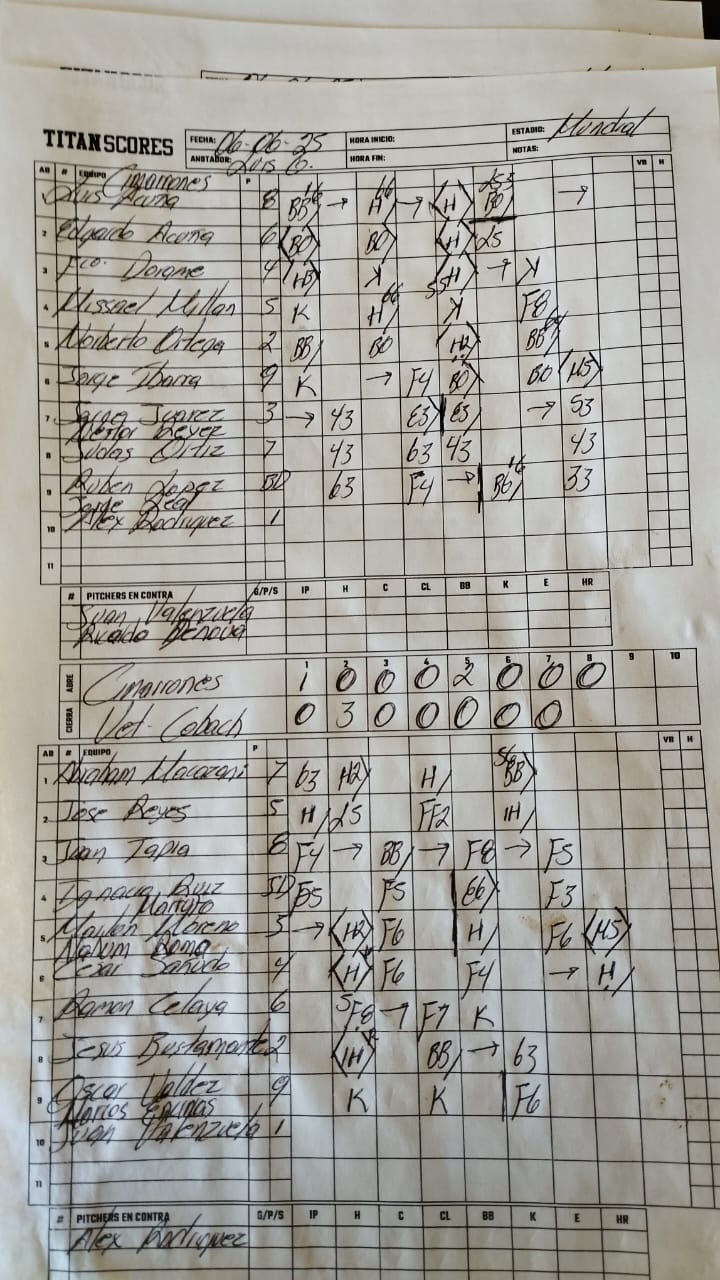 TITAN SCORES
FECHA: 06-06-25 HORA INICIO: ESTADIO: Mundial
ANOTADOR: Luis G. HORA FIN: NOTAS:
AB # EQUIPO Cimarrones P VB H
1 Luis Acuña 8 BB → H → H BO →
2 Edgardo Acuña 6 BO BO H 25
3 Fco. Dorame 4 K H → K
4 Missael Millan 5 K H K F8
5 Norberto Ortega 2 BB BO H2 BB
6 Jorge Ibarra 9 K → F4 BO BO H5
7 Juarez 3 → 43 E3 E3 → 53
8 Judas Ortiz 7 43 63 43 43
9 Ruben Lopez BD 63 F4 → 33
10 Alex Rodriguez 1
11
# PITCHERS EN CONTRA G/P/S IP H C CL BB K E HR
Juan Valenzuela
Ricardo
1 2 3 4 5 6 7 8 9 10
ABRE Cimarrones 1 0 0 0 2 0 0 0
CIERRA Vet. Cobach 0 3 0 0 0 0 0
AB # EQUIPO P VB H
1 Abraham 7 63 H2 H BB
2 Jose Reyes 5 H 25 FF2 1H
3 Juan Tapia 8 F4 → BB → F8 → F5
4 Ignacio Ruiz F5 F3
5 Marlon Moreno 3 → H2 F6 H F6 H5
6 Cesar Sañudo 4 H F6 F4 → H
7 Ramon Celaya 6 F8 → F7 K
8 Jesus Bustamante 2 1H BB → 63
9 Oscar Valdez 9 K K F6
Marcos Encinas
10 Juan Valenzuela 1
11
# PITCHERS EN CONTRA G/P/S IP H C CL BB K E HR
Alex Rodriguez